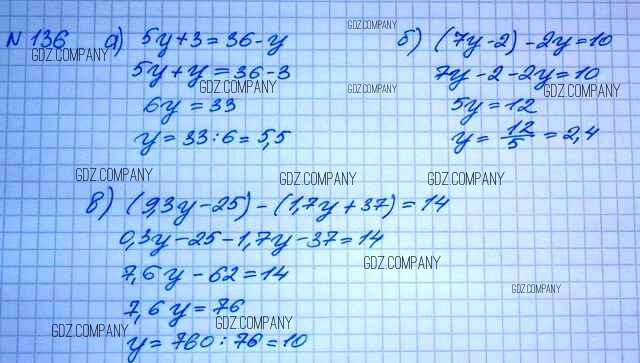 N 136 а) 5y+3=36-y
5y+y=36-3
6y=33
y=33:6=5,5
б) (7y-2)-2y=10
7y-2-2y=10
5y=12
y=12/5=2,4
в) (9,3y-25)-(1,7y+37)=14
0,3y-25-1,7y-37=14
7,6y-62=14
7,6y=76
y=760:76=10
GDZ.COMPANY
GDZ.COMPANY
GDZ.COMPANY
GDZ.COMPANY
GDZ.COMPANY
GDZ.COMPANY
GDZ.COMPANY
GDZ.COMPANY
GDZ.COMPANY
GDZ.COMPANY
GDZ.COMPANY
GDZ.COMPANY